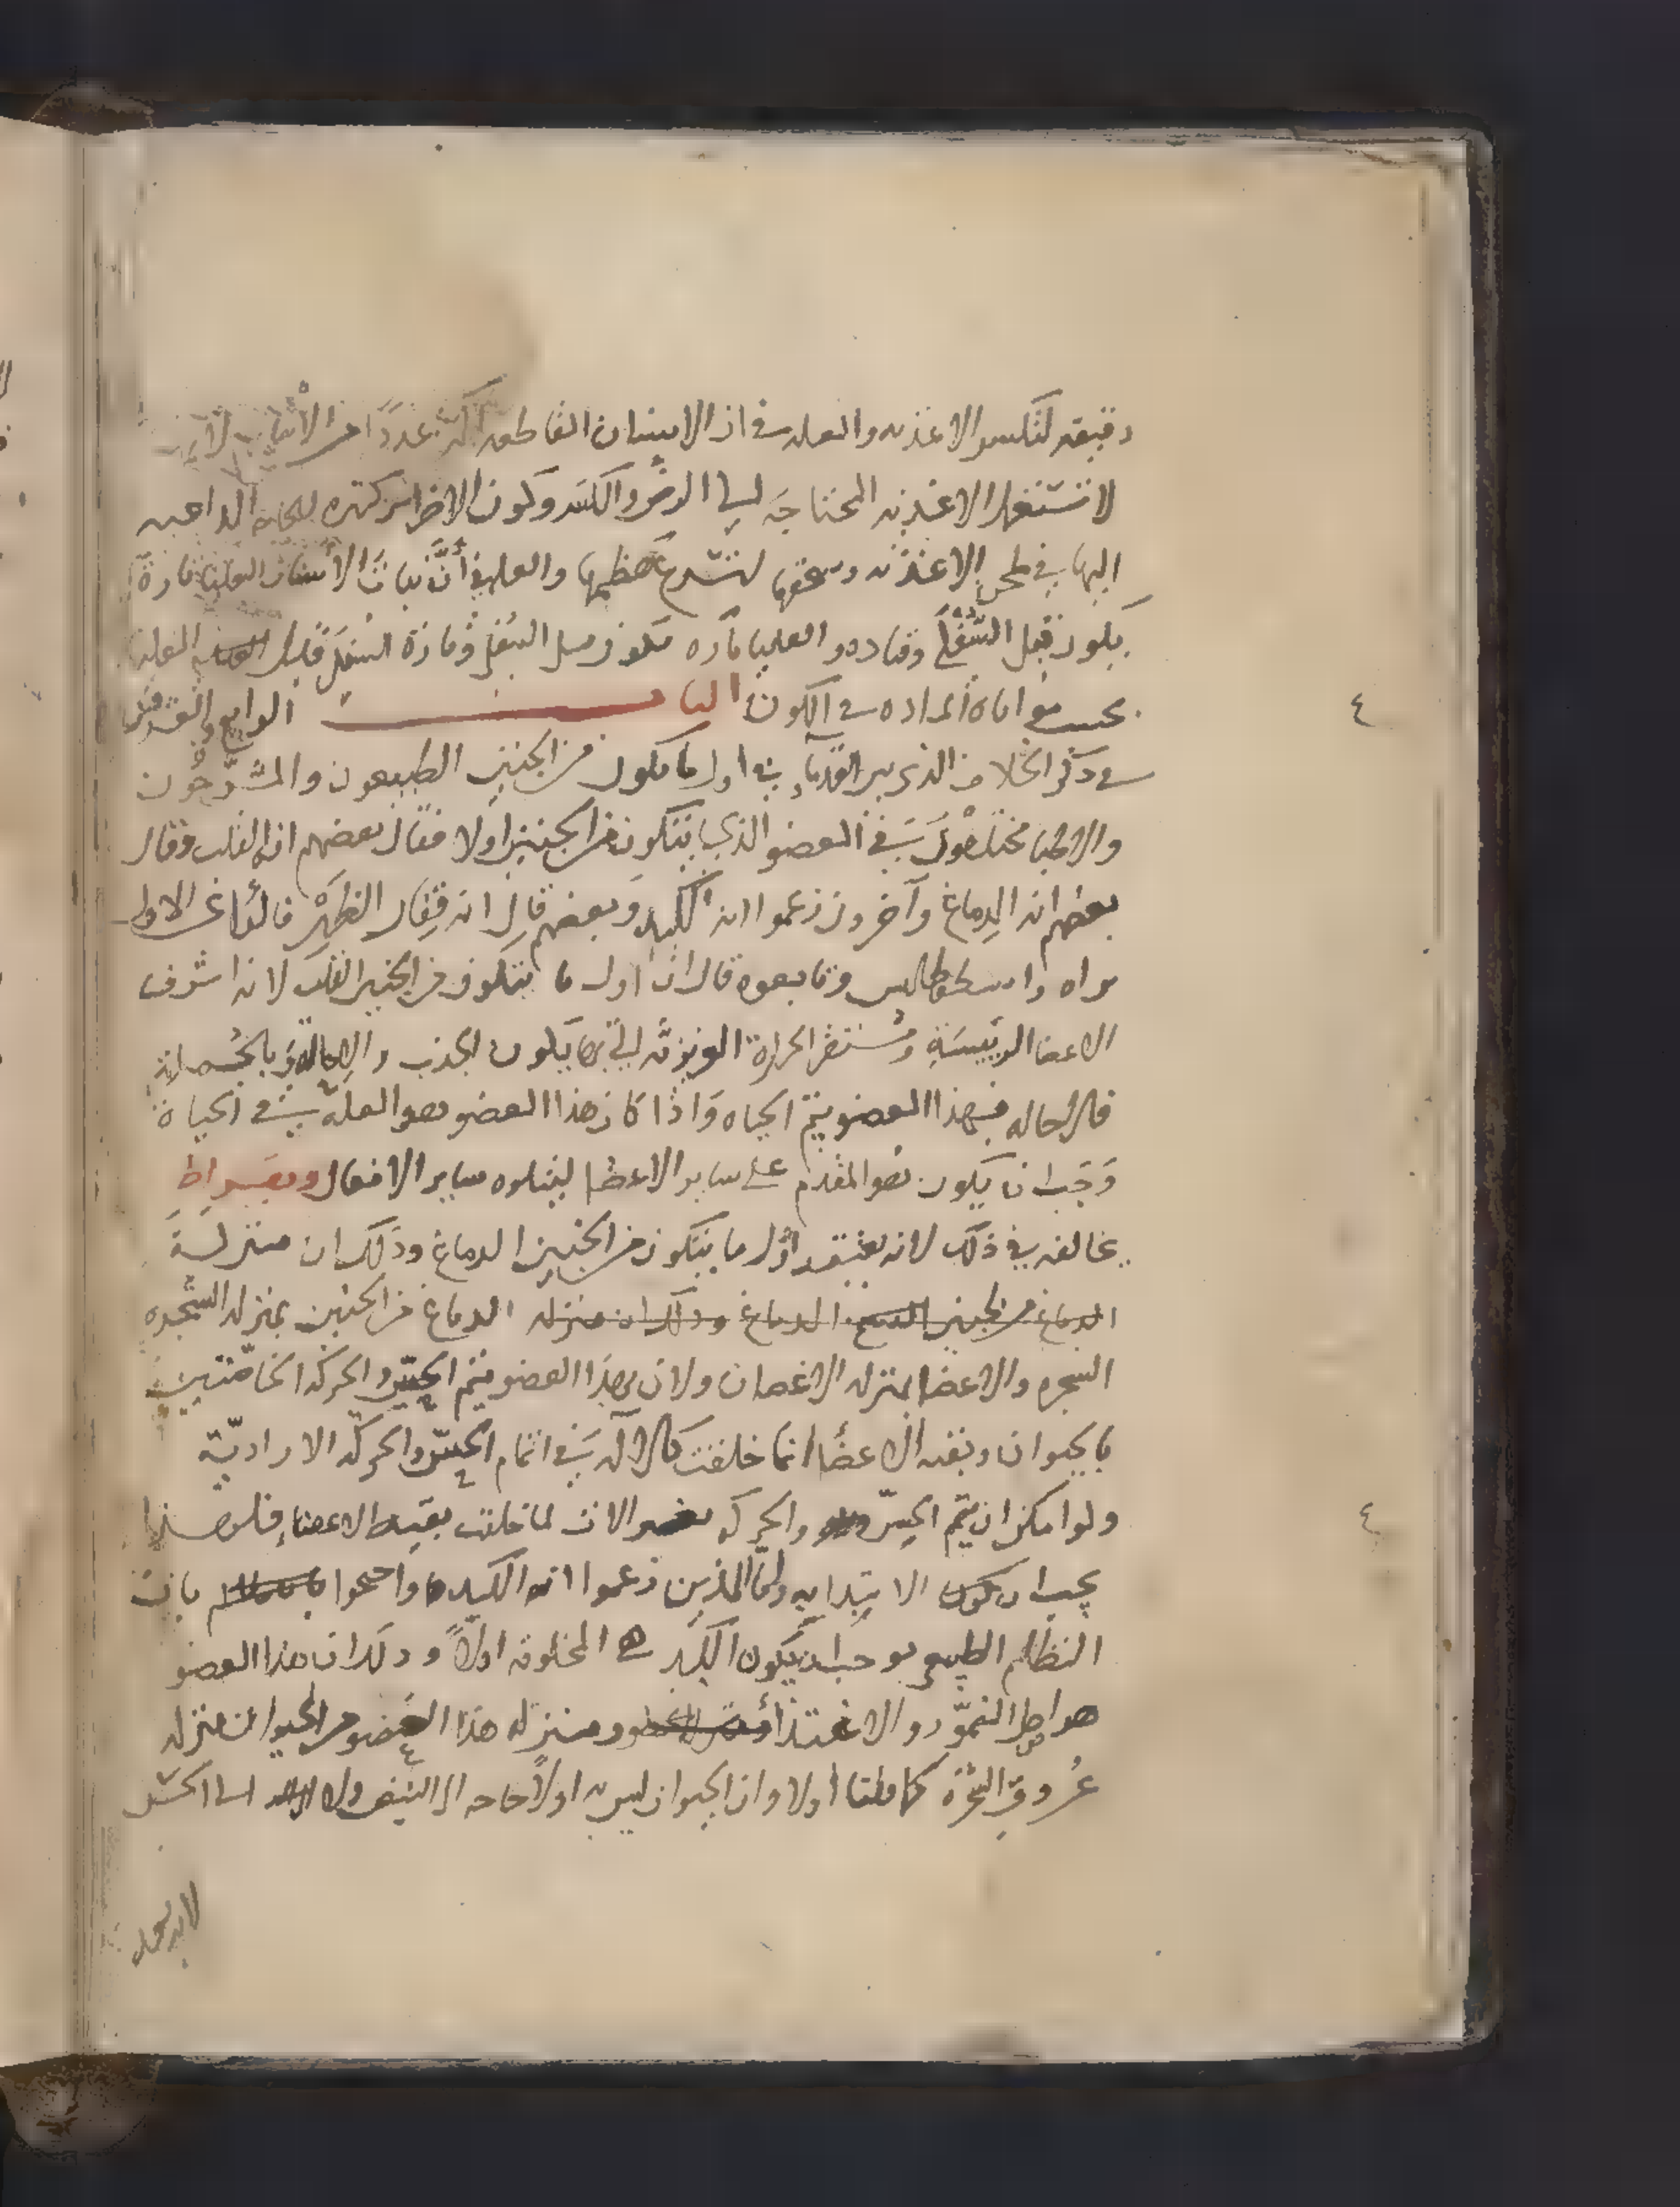 دقيقه لتكسر الاغذيه والعله في ان الاسنان القاطعه اكثر عددًا من الأنياب لان
لا تستعمل الاغذيه المحتاجَه الي الرضّ والكسر وكون الاضراس كثيره للحاجه الداعيه
اليها في طحن الاغذيه وسحقها لتسرع هضمها والعله في أنَّ نبات الأسنان العليا تارةً
يكون قبل السُّفْلَي وتاره والعليا تاره تكون قبل السُفلي وتارة السفلي قبل العليا
بحسب مواتاة الماده في الكون البابــــــ الرابع والعشرون
في ذكر الخلاف الذي بين القدماء في اول ما يكون من الجنين الطبيعيون والمشرِّحُون
والاطبا مختلفُونَ في العضو الذي يتكون من الجنين اولا فقال بعضهم انه القلب وقال
بعضهم انه الدِماغ وآخرون زعموا انه الكبد وبعضهم قال انه فِقار الظهْر قالوا عن الاول
براه وارسطوطاليس وتابعوه قال ان اول ما يتكون من الجنين القلب لانه اشرف
الاعضا الرييسَةِ ومُستقرّ الحرارة الغريزيّه التي بها يكون الجذب والاحالة وبالجُملة
قال الحاله فبهذا العضو يتم الحياه وَاذا كان هذا العضو هو العلّه في الحياة
وَجَب ان يكون هو المقدم علي ساير الاعضا ليتلوه ساير الافعال وبقراط
يخالفه في ذلك لانه يعتقد اوّل ما يتكون من الجنين الدماغ وذلك ان منزلَة
الدماغ من الجنين الدماغ وذلك ان منزله الدماغ من الجنين بمنزله الشجره
الشجره والاعضا بمنزله الاغصان ولان بهذا العضو يتم الحِسّ والحركه الخاصّتين
بالحيوان وبقيه الاعضَا انما خلقت كالآله في اتمام الحِسّ والحركه الاراديّة
ولو امكن ان يتم الحِسّ والحركه بغير الات لما خلقت بقيه الاعضاء فلهذا
يجب ان يكون الابتدا به وامّا الذين زعموا انه الكبد واحتجوا بان
النظام الطبيعي يوجب ان يكون الكبد هي المخلوقه اولاً وذلك ان هذا العضو
هو اصل النموّ والاغتذاء ومنزله هذا العضو من الحيوان منزله
عُروق الشجرة كما قلنا اولا وان الحيوان ليس به اولاً حاجه الي النبض ولا الي الحسّ
لانه يعد
٤
٤